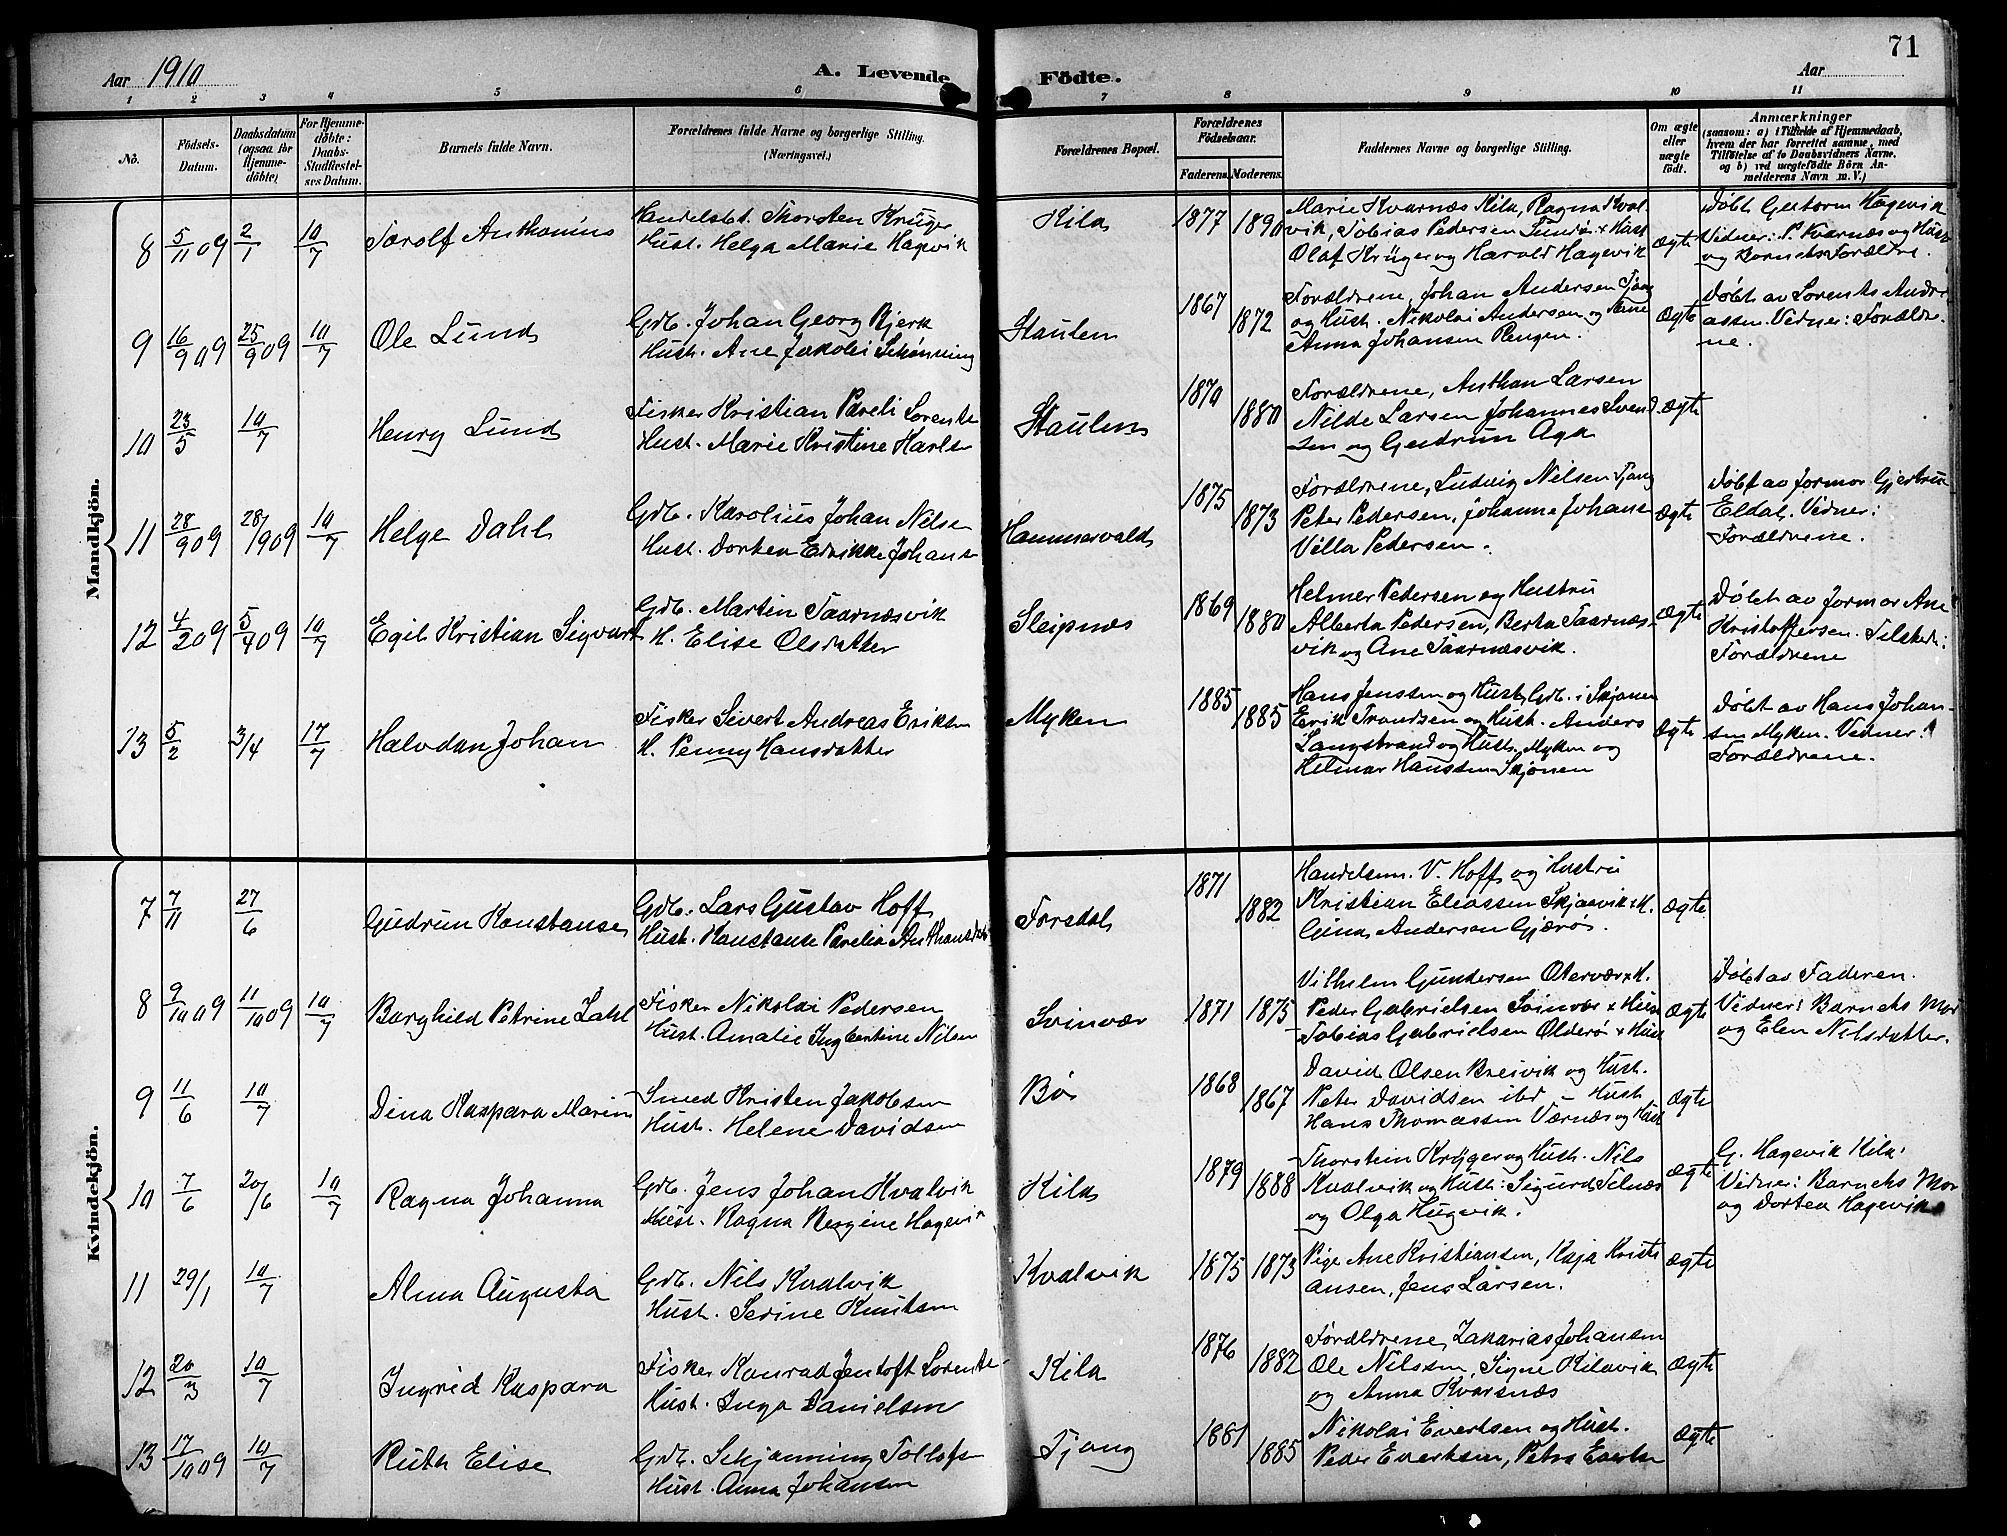 71
Aar 1910
A. Levende Födte.
Aar
1 2 3 4 5 6 7 8 9 10 11
No.
Födsels-Datum.
Daabsdatum (ogsaa for Hjemme-döbte)
For Hjemme-döbte: Daabs-Stadfæstel-ses Datum.
Barnets fulde Navn.
Forældrenes fulde Navne og borgerlige Stilling. (Næringsvei.)
Forældrenes Bopæl.
Forældrenes Födselsaar.
Faderens. Moderens.
Faddernes Navne og borgerlige Stilling.
Om ægte eller uægte födt.
Anmærkninger
(saasom: a) i Tilfælde af Hjemmedaab, hvem der har forrettet samme, med Tilföielse af to Daabsvidners Navne, og b) ved uægtefödte Börn An-melderens Navn m. V.)
Mandkjön.
8 5/11 09 2/1 10/7 Torolf Anthonius
Handelsbt. Thorsten Krüger
Hust. Helga Marie Hagevik
Kila 1877 1890
Marie Kvarnæs Kila, Ragna Kval-
vik, Tobias Pedersen Sundø + Hust
Olaf Krüger og Harald Hagevik
ægte
Døbt Gertorm Hagevik
Vidner: P. Kvarnæs og Hust
og Barnets Forældre.
9 16/9 09 25/9 09 10/7 Ole Lund
Gdb. Johan Georg Bjerk
Hust. Ane Jakobi Schønning
Staulen 1867 1872
Forældrene, Johan Andersen Tjong
og Hust. Nikolai Andersen og
Anna Johansen Rengen.
ægte
Døbt av Lorents Andre-
assen. Vidner: Forældre-
ne.
10 23/5 10/7 Henry Lund
Fisker Kristian Pareli Lorents
Hust. Marie Kristine Karls
Staulen 1870 1880
Forældrene, Anthon Larsen
Nilde Larsen Johannes Svend
sen og Gudrun Aga
ægte
11 28/9 09 28/1909 10/7 Helge Dahl
Gdb. Karolius Johan Nilse
Hust. Dortea Edrikke Johans
Hammervold 1875 1873
Forældrene, Ludvig Nilsen Tjong
Peter Pedersen, Johanna Johans
Villa Pedersen.
ægte
Døbt av formor Gjertru
Eldal. Vidner:
Forældrene.
12 4/2 09 5/4 09 10/7 Egil Kristian Sigvart
Gdb. Martin Taarnæsvik
H. Elise Olsdatter
Sleipnæs 1869 1880
Helmer Pedersen og Hustru
Alberta Pedersen, Berta Taarnæs-
vik og Ane Taarnæsvik.
ægte
Døbt av formor Ane
Kristoffersen. Tilstede:
Forældrene
13 5/2 3/4 17/7 Halvdan Johan
Fisker Sivert Andreas Eriksen
H. Penny Hansdatter
Myken 1885 1885
Hans Jenssen og Hust, Gdb. i Skjonen
Erik Trondsen og Hust. Anders
Langstrand og Hust. Myken og
Helmar Hanssen Skjonen
ægte
Døbt av Hans Johan-
sen Myken. Vidner:
Forældrene.
Kvindekjön.
7 7/11 27/6 Gudrun Konstanse
Gdb. Lars Gustav Hoff
Hust. Konstanse Parelia
Forsdal 1871 1882
Handelsm. V. Hoff og Hustru
Kristian Eliassen Skjaavik + H.
Gina Andersen Gjærø.
ægte
8 9/10 09 11/10 09 10/7 Borghild Petrine Zahl
Fisker Nikolai Pedersen
Hust. Amalie Ingbertine Nilsen
Svinvær 1871 1875
Vilhelm Gundersen Otervær + H.
Peder Gabrielsen Svinvær + Hust
Tobias Gabrielsen Olderø + Hust
ægte
Døbt av Faderen.
Vidner: Barnets Mor
og Elen Nilsdatter.
9 11/6 10/7 Dina Kaspara Marin
Smed Kristen Jakobsen
Hust. Helene Davidsen
Bø 1868 1867
David Olsen Breivik og Hust.
Peter Davidsen ibd - Hust
Hans Thomassen Værnæs og Hust
ægte
10 7/6 20/6 10/7 Ragna Johanna
Gdb. Jens Johan Kvalvik
Hust. Ragna Bergine Hagevik
Kila 1879 1888
Thorstein Krüger og Hust. Nils
Kvalvik og Hust: Sigurd Selnæs
og Olga Hagvik.
ægte
G. Hagevik Kila:
Vidner: Barnets Mor
og Dortea Hagevik
11 29/1 10/7 Alma Augusta
Gdb. Nils Kvalvik
Hust. Serine Knutsen
Kvalvik 1875 1873
Pige Ane Kristiansen, Kaja Kristi
ansen, Jens Larsen.
ægte
12 20/3 10/7 Ingrid Kaspara
Fisker Konrad Jentoft Lorents-
Hust. Inga Danielsen
Kila 1876 1882
Forældrene, Zakarias Johansen
Ole Nilssen, Signe Kilavik
og Anna Kvarsnæs
ægte
13 17/10 09 10/7 Ruth Elise
Gdb. Schjønning Tollofs
Hust. Anna Johansen
Tjong 1881 1885
Nikolai Evertsen og Hust.
Peder Evertsen, Petra Everts
ægte